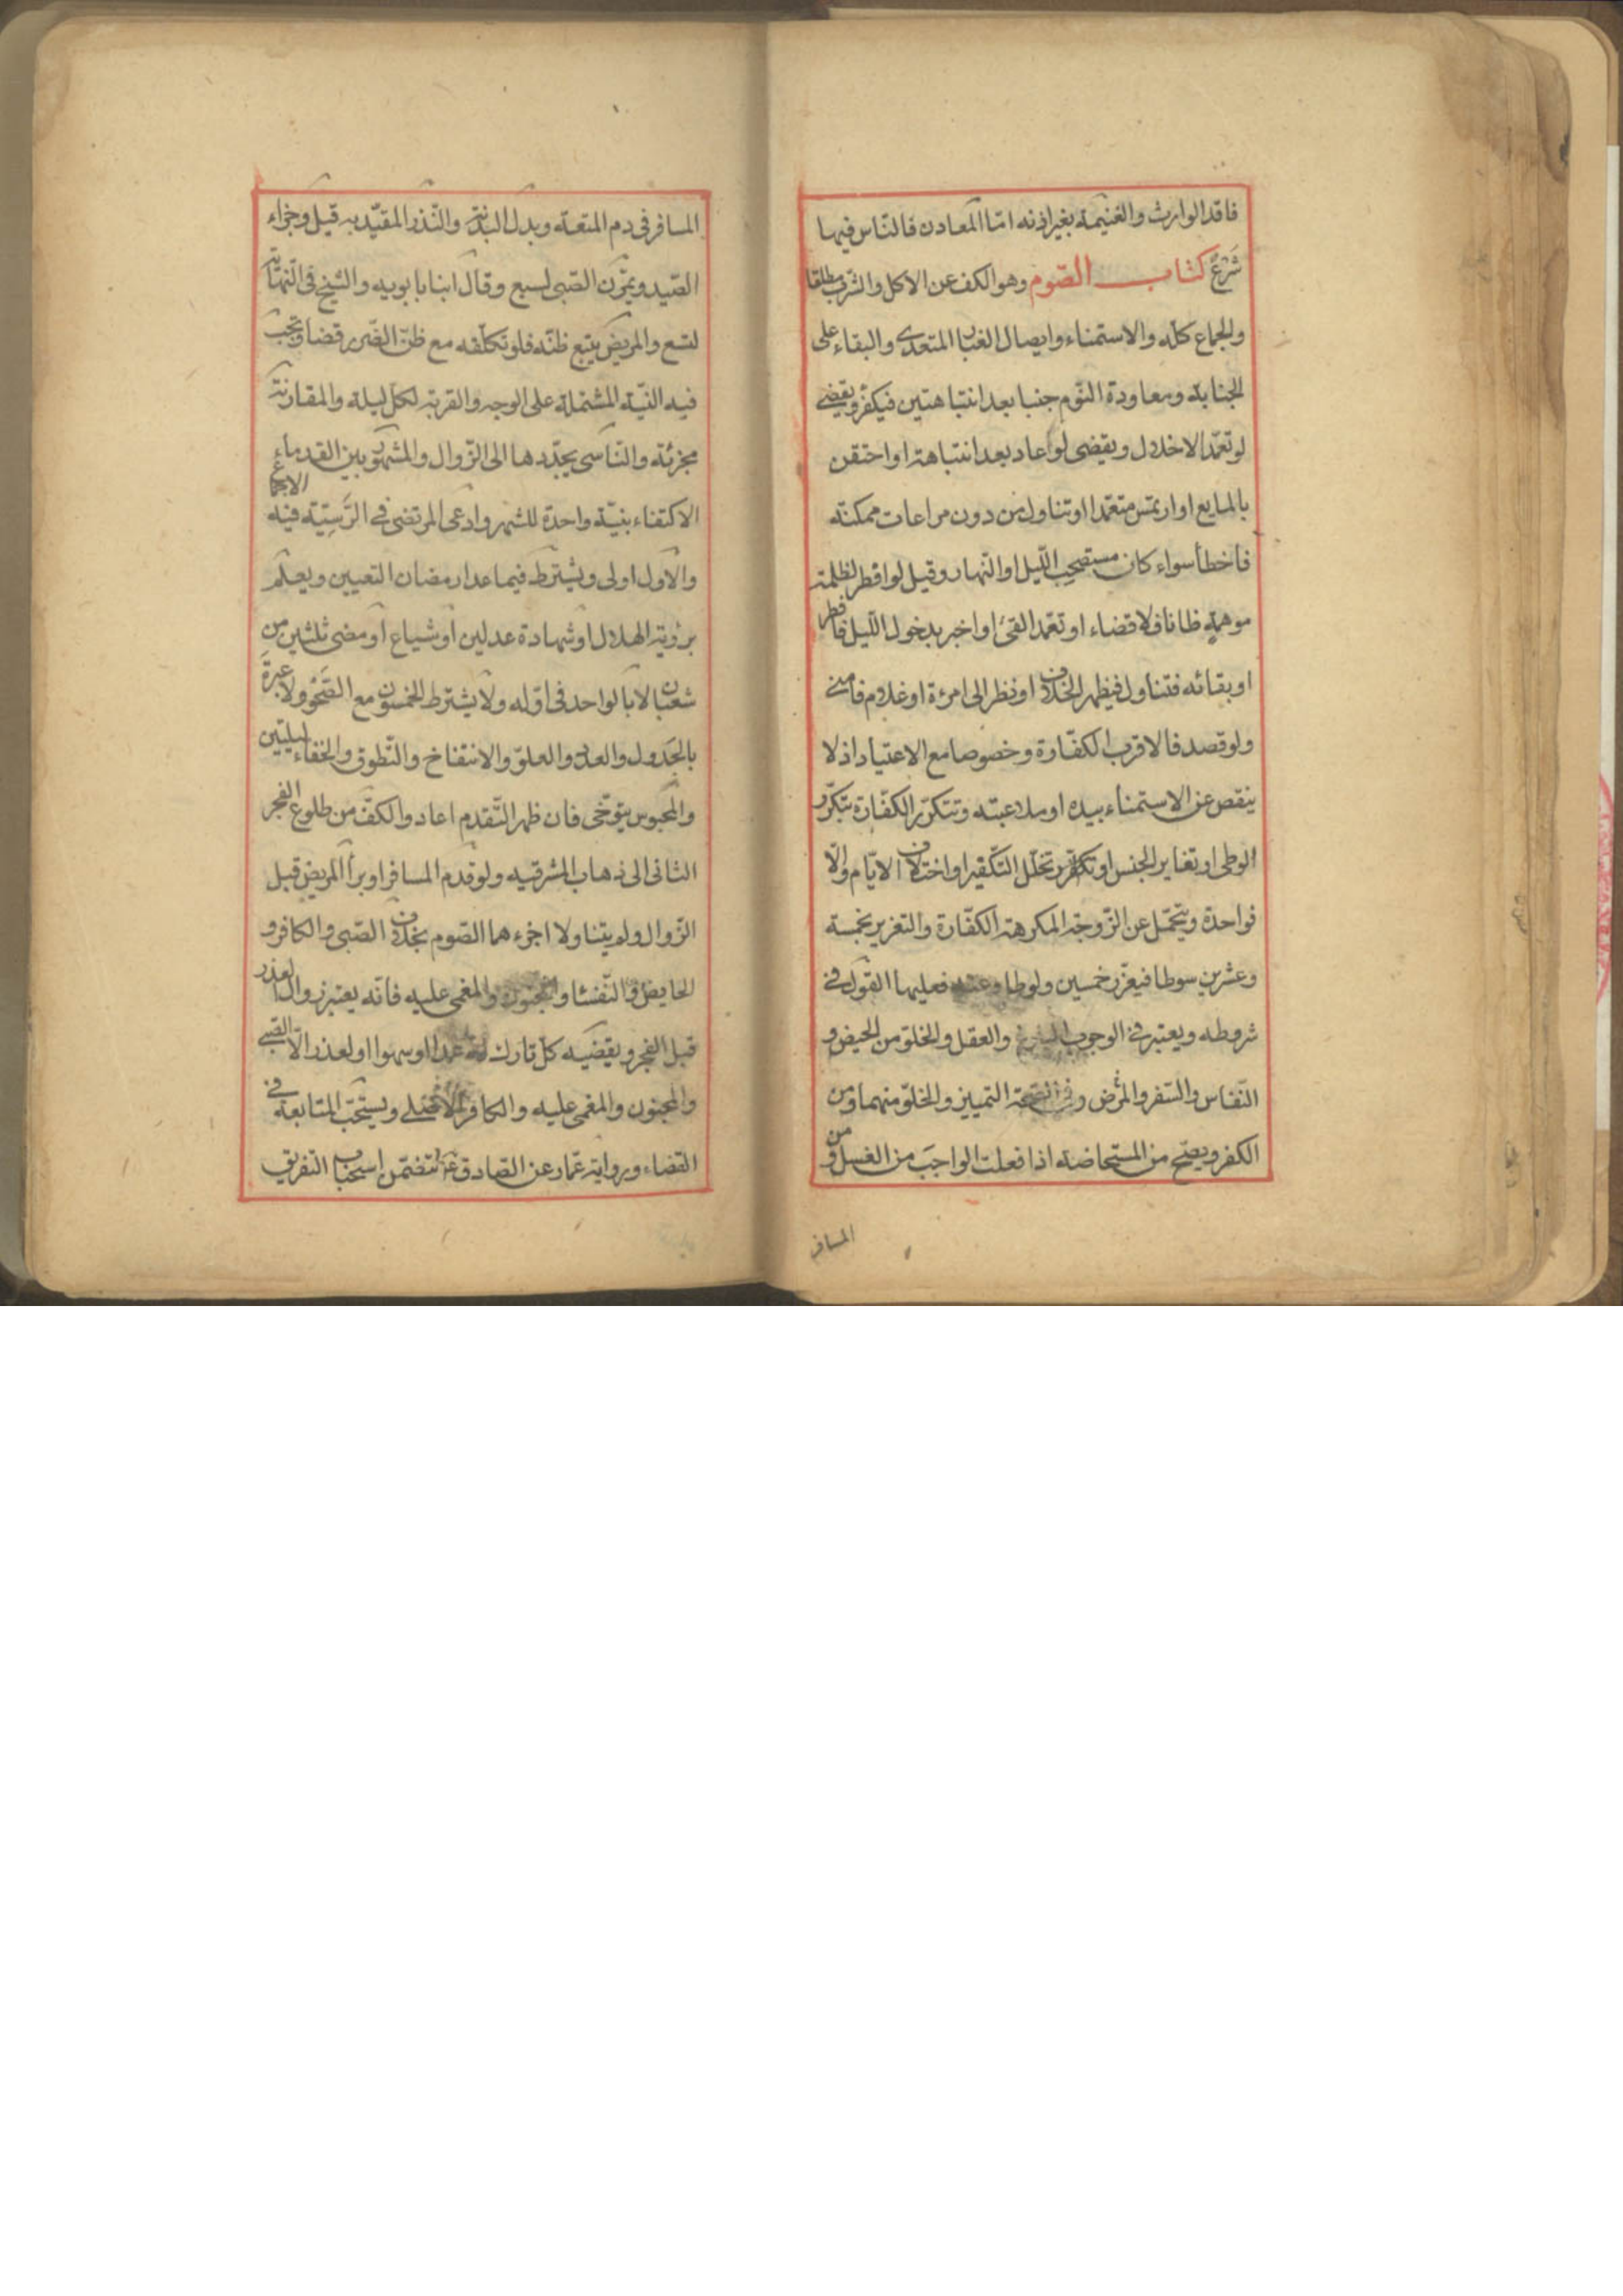 فاقد الوارث والغنيمة بغير اذنه امّا المعادن فالنّاس فيها
شَرَعٌ كتاب الصّوم وهو الكف عن الاكل والشّرب مطلقا
والجماع كلّه والاستمناء وايصال الغبا المتعدى والبقاء على
الجنابة ومعاودة النّوم جنبا بعد انتباهتين فيكفّر ويقضى
لو تعمّد الاخلال ويقضى لو اعاد بعد انتباهة او احتقن
بالمايع او ارتمس متعمّدا او تناول من دون مراعات ممكنة
فأخطأ سواء كان مستصحب اللّيل او النّهار وقيل لو افطر لظلمة
موهمة ظانا فلا قضاء او تعمّد القئ او اخبر بدخول اللّيل فافطر
او بقائه فتناول فيظهر الخلاف او نظر الى امرءة او غلام فامنى
ولو قصد فالاقرب الكفّارة وخصوصا مع الاعتياد اذ لا
ينقص عن الاستمناء بيده او ملاعبته وتتكرّر الكفّارة بتكرّر
الوطى او تغاير الجنس او تخلّل التّكفير او اختلاف الايّام والّا
فواحدة ويتحمّل عن الزّوجة المكرهة الكفّارة والتعزير بخمسة
وعشرين سوطا فيعزّر خمسين ولو طاوعته فعليها القول فى
شروطه ويعتبر فى الوجوب البلوغ والعقل والخلوّ من الحيض و
النّفاس والسّفر والمرض وفى الصّحة التمييز والخلوّ منهما ومن
الكفر ويصحّ من المستحاضة اذا فعلت الواجبَ من الغسل ومن
المسافر
المسافر فى دم المتعة وبدل البدنة والنّذر المقيّد به قيل وجزاء
الصّيد ويمرّن الصّبى لسبع وقال ابنا بابويه والشّيخ فى النّهاية
لتسع والمريض يتبع ظنّه فلو تكلّفه مع ظنّ الضّرر قضا وتجب
فيه النيّة المشتملة على الوجه والقربة لكلّ ليلة والمقارنة
مجزئة والنّاسى يجدّدها الى الزّوال والمشهور بين القدماء
الاكتفاء بنيّة واحدة للشهر وادّعى المرتضى فى الرَّسِّيّة فيه الاجماع
والاوّل اولى ويشترط فيما عدا رمضان التعيين ويعلم
برؤية الهلال او شهادة عدلين او شياع او مضى ثلثين من
شعبان لا بالواحد فى اوّله ولا يشترط الخمسون مع الصَّحْو ولا عبرة
بالجَدول والعدد والعلوّ والانتفاخ والتّطوق والخفاء ليلتين
والمحبوس يتوخّى فان ظهر التّقدم اعاد والكفّ من طلوع الفجر
الثانى الى ذهاب المشرقيه ولو قدم المسافر او برأ المريض قبل
الزّوال ولم يتناولا اجزءهما الصّوم بخلاف الصّبى والكافر و
الحايض والنّفسا والمجنون والمغمى عليه فانّه يعتبر زوال العذر
قبل الفجر ويقضيه كلّ تارك له عمدا او سهوا او لعذر الّا الصّبى
والمجنون والمغمى عليه والكافر الاصلى ويستحّب المتابعة فى
القضاء ورواية عمّار عن الصّادق ع تتضمّن استحباب التفريق